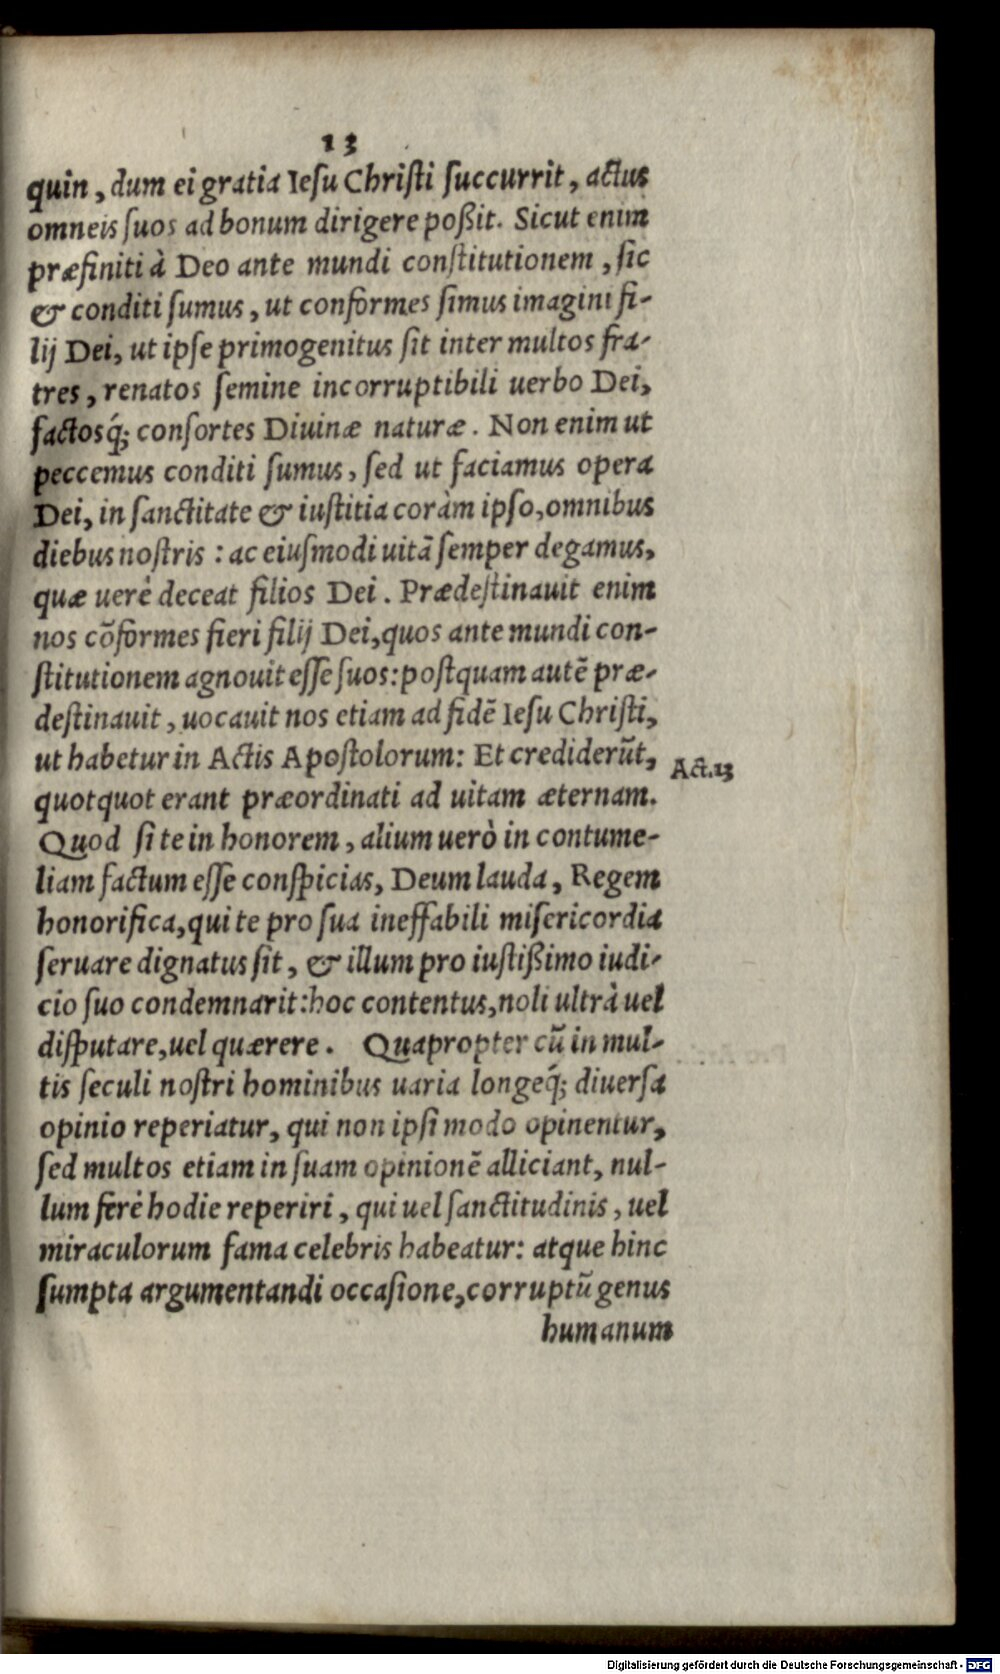 13
quin, dum ei gratia Iesu Christi succurrit, actus
omneis suos ad bonum dirigere poßit. Sicut enim
præfiniti à Deo ante mundi constitutionem, sic
& conditi sumus, ut conformes simus imagini fi-
lij Dei, ut ipse primogenitus sit inter multos fra-
tres, renatos semine incorruptibili uerbo Dei,
factosq́; consortes Diuinæ naturæ. Non enim ut
peccemus conditi sumus, sed ut faciamus opera
Dei, in sanctitate & iustitia coràm ipso, omnibus
diebus nostris: ac eiusmodi uitā semper degamus,
quæ uerè deceat filios Dei. Prædestinauit enim
nos cōformes fieri filij Dei, quos ante mundi con-
stitutionem agnouit esse suos: postquam autē præ-
destinauit, uocauit nos etiam ad fidē Iesu Christi,
ut habetur in Actis Apostolorum: Et crediderūt,
Act. 13
quotquot erant præordinati ad uitam æternam.
Quod si te in honorem, alium uerò in contume-
liam factum esse conspicias, Deum lauda, Regem
honorifica, qui te pro sua ineffabili misericordia
seruare dignatus sit, & illum pro iustißimo iudi-
cio suo condemnarit: hoc contentus, noli ultrà uel
disputare, uel quærere. Quapropter cū in mul-
tis seculi nostri hominibus uaria longeq́; diuersa
opinio reperiatur, qui non ipsi modo opinentur,
sed multos etiam in suam opinionē alliciant, nul-
lum ferè hodie reperiri, qui uel sanctitudinis, uel
miraculorum fama celebris habeatur: atque hinc
sumpta argumentandi occasione, corruptū genus
humanum
Digitalisierung gefördert durch die Deutsche Forschungsgemeinschaft - DFG